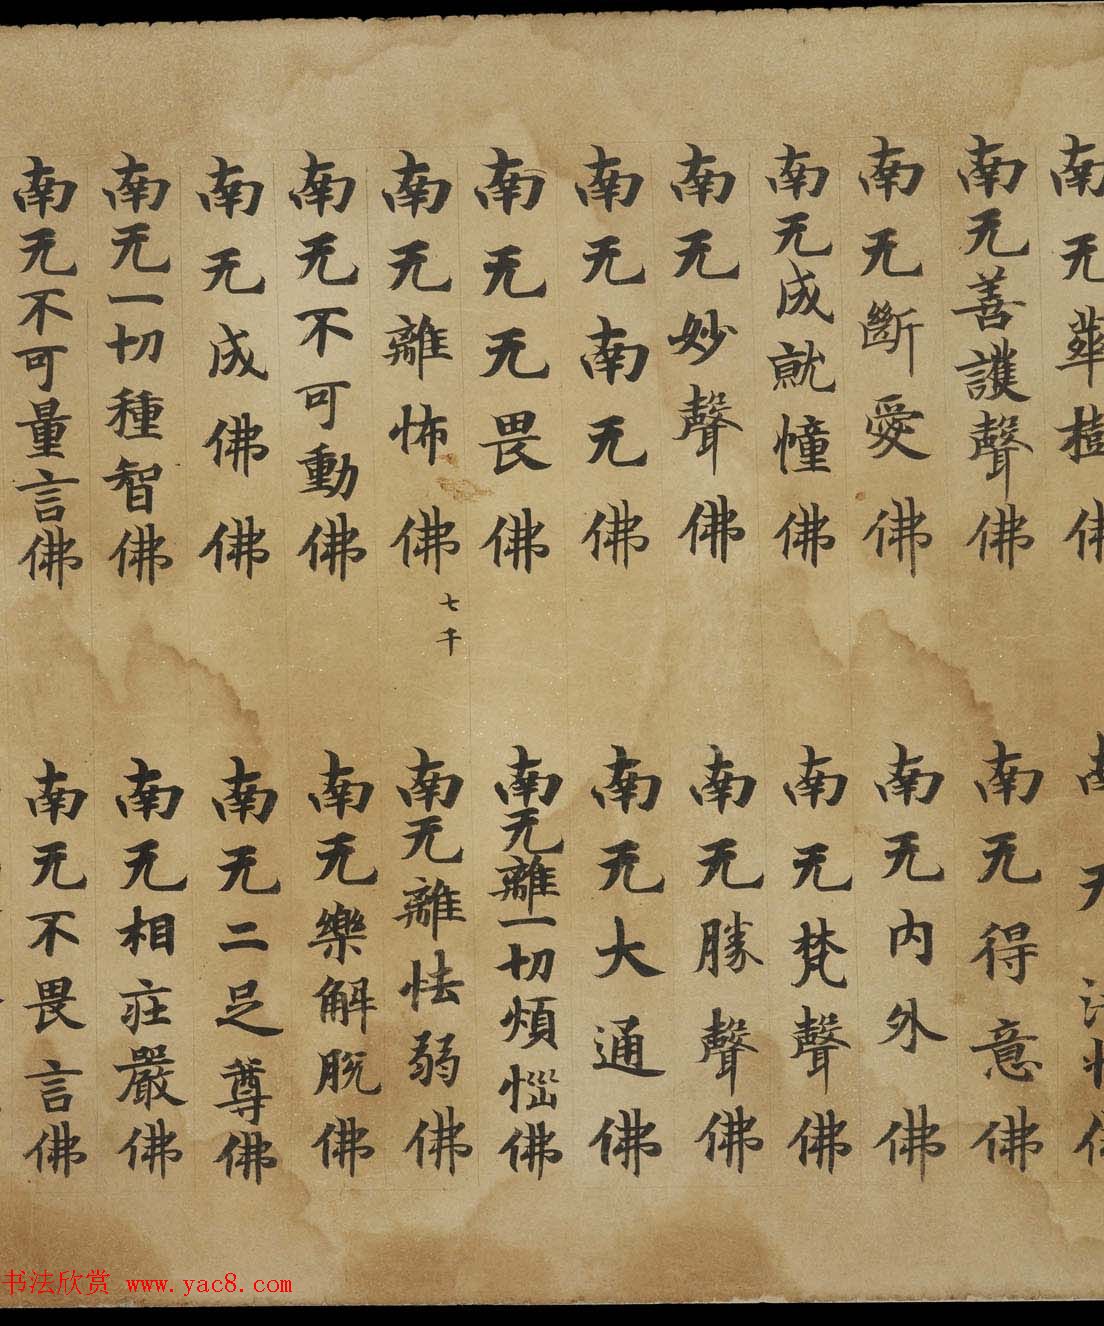 南无華
南无善護聲佛
南无得意佛
南无斷愛佛
南无内外佛
南无成就憧佛
南无梵聲佛
南无妙聲佛
南无勝聲佛
南无南无佛
南无大通佛
南无无畏佛
南无離一切煩惱佛
南无離怖佛
七千
南无離怯弱佛
南无不可動佛
南无樂解脫佛
南无成佛佛
南无二足尊佛
南无一切種智佛
南无相莊嚴佛
南无不可量言佛
南无不畏言佛
书法欣赏 www.yac8.com